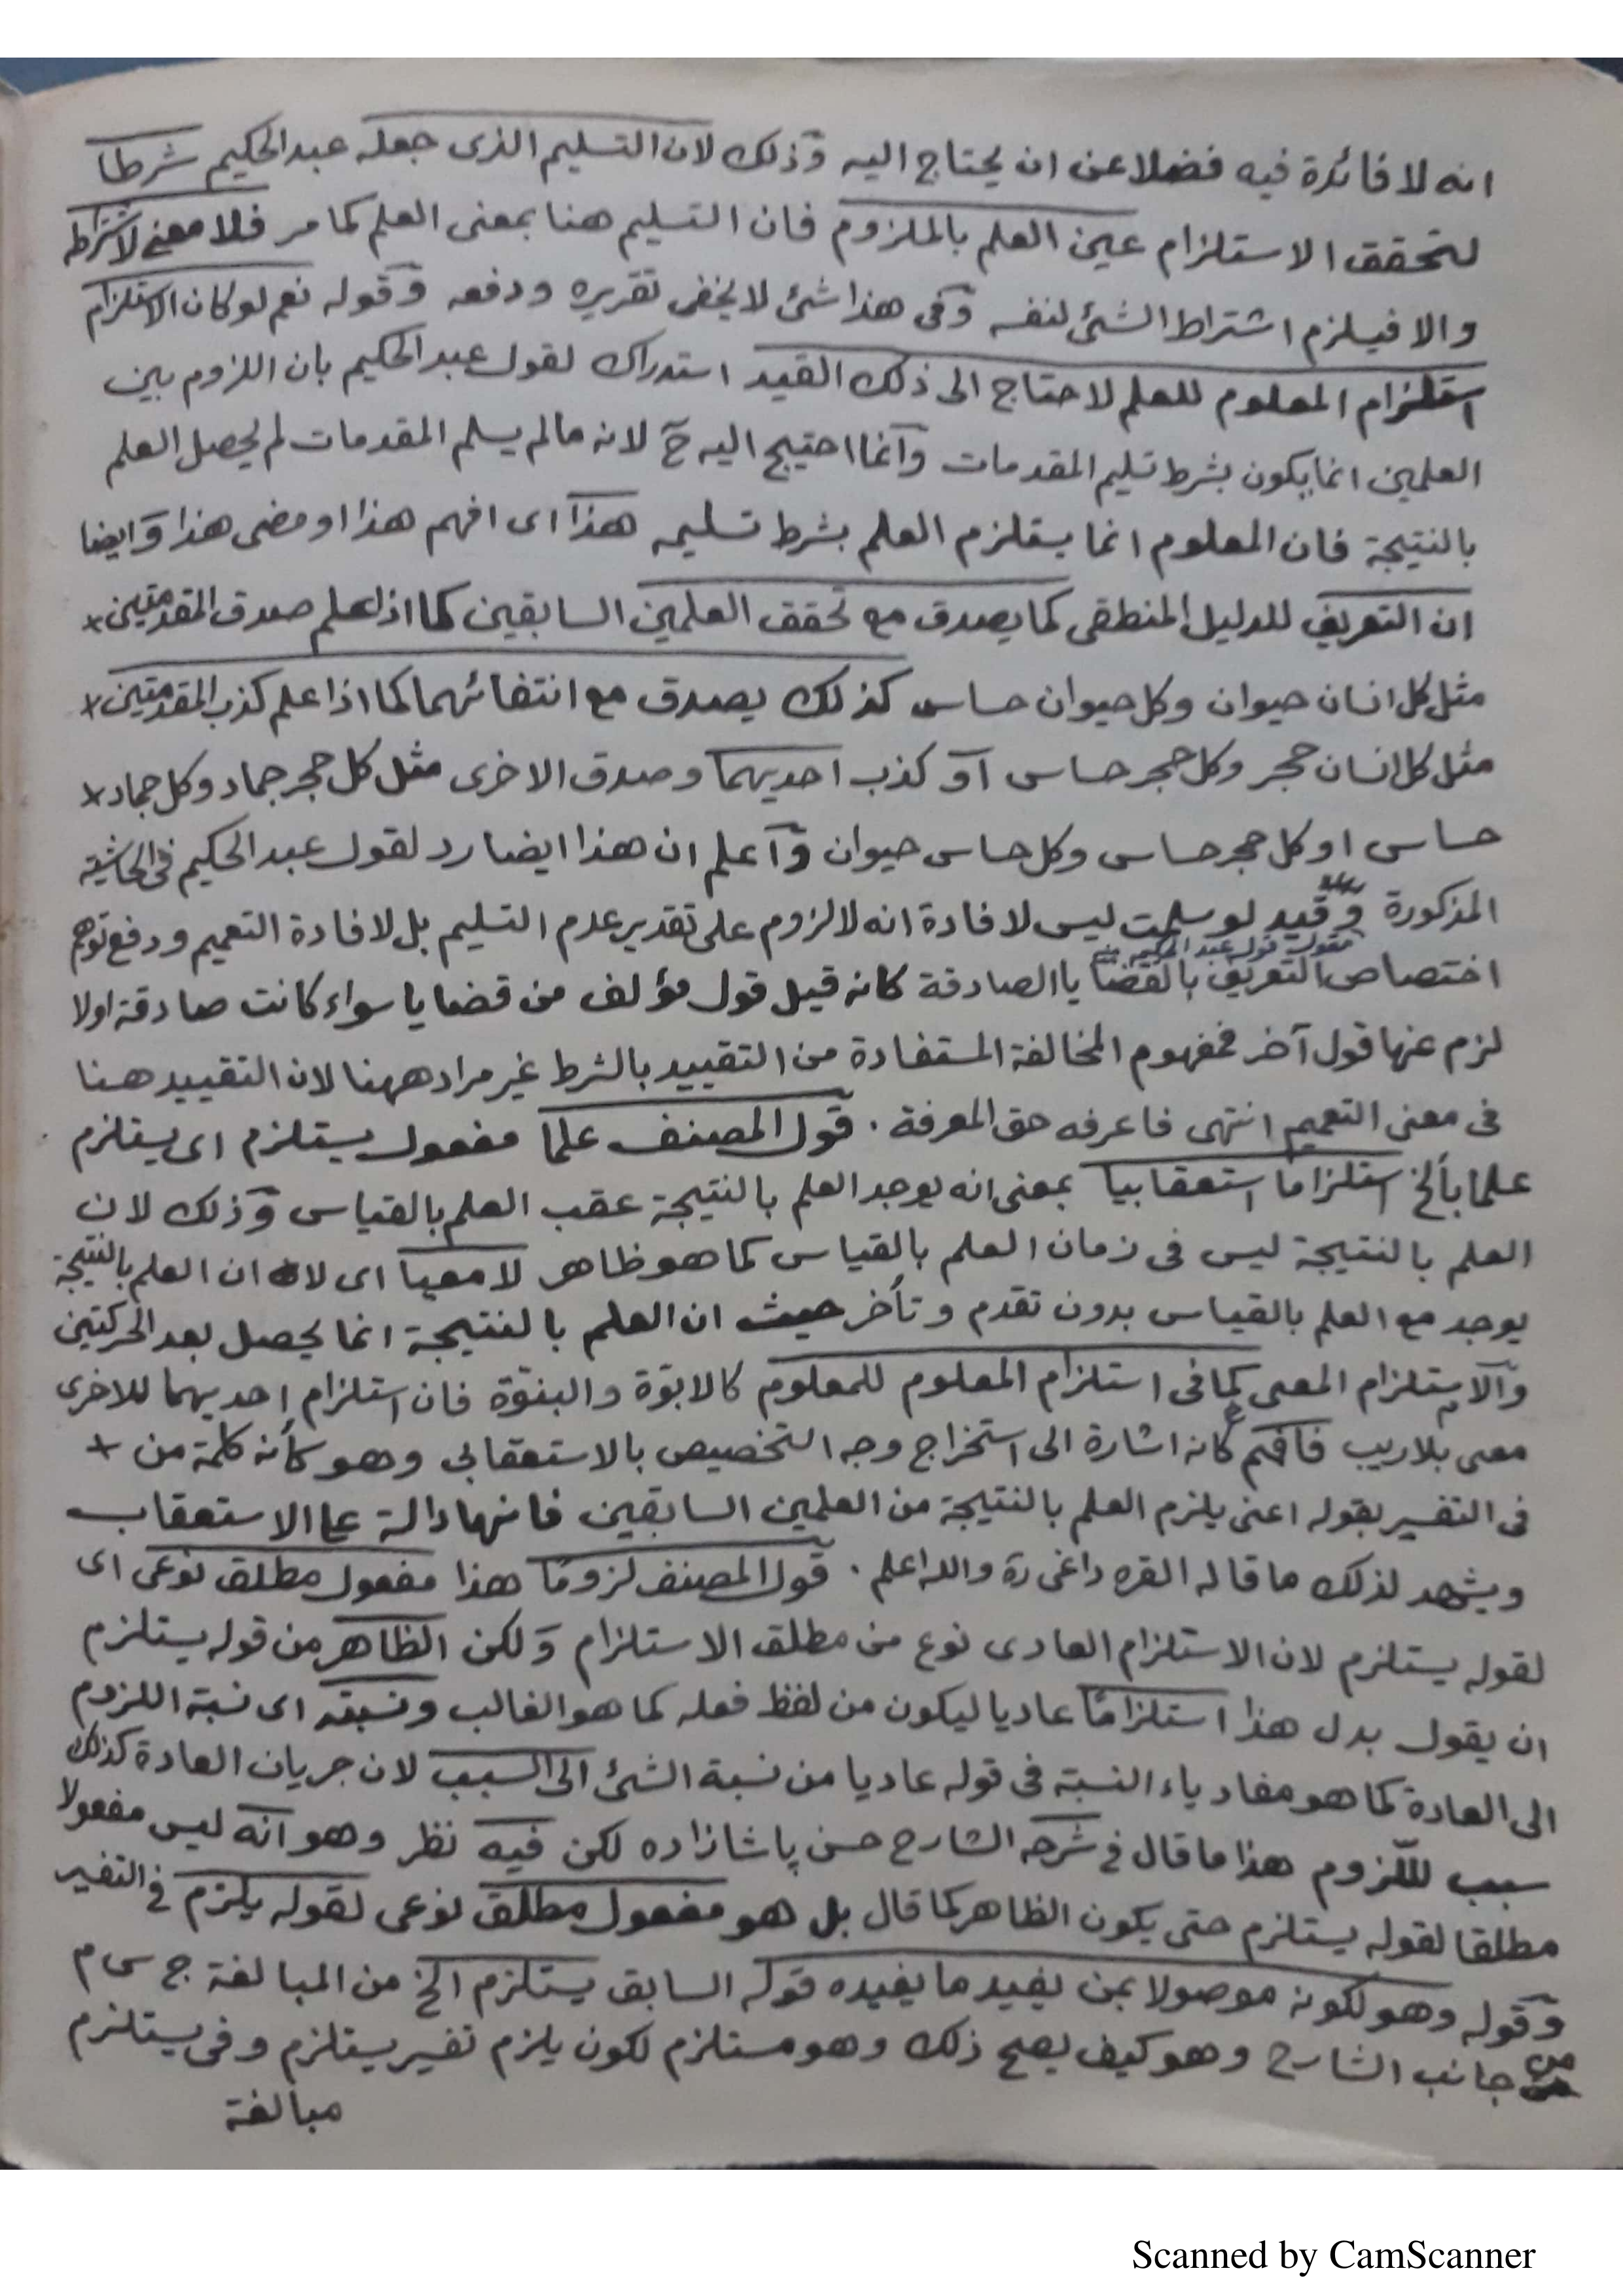 انه لا فائدة فيه فضلا عن ان يحتاج اليه وذلك لان التسليم الذى جعله عبد الحكيم شرطا
لتحقق الاستلزام عين العلم بالملزوم فان التسليم هنا بمعنى العلم كما مر فلا معنى لاشتراطه
والا فيلزم اشتراط الشئ لنفسه وفى هذا شئ لا يخفى تقريره ودفعه وقوله نعم لو كان الاستلزام
استلزام المعلوم للعلم لاحتاج الى ذلك القيد استدراك لقول عبد الحكيم بان اللزوم بين
العلمين انما يكون بشرط تسليم المقدمات وانما احتيج اليه ح لانه مالم يسلم المقدمات لم يحصل العلم
بالنتيجة فان المعلوم انما يستلزم العلم بشرط تسليمه هذا اى افهم هذا او مضى هذا وايضا
ان التعريف للدليل المنطقى كما يصدق مع تحقق العلمين السابقين كما اذا علم صدق المقدمتين ×
مثل كل انسان حيوان وكل حيوان حساس كذلك يصدق مع انتفائهما كما اذا علم كذب المقدمتين ×
مثل كل انسان حجر وكل حجر حساس او كذب احديهما وصدق الاخرى مثل كل حجر جماد وكل جماد ×
حساس او كل حجر حساس وكل حساس حيوان واعلم ان هذا ايضا رد لقول عبد الحكيم فى الحاشية
المذكورة وقيد لو سلمت ليس لافادة انه لا لزوم على تقدير عدم التسليم بل لافادة التعميم ودفع توهم
مقول قول عبد الحكيم
اختصاص التعريف بالقضايا الصادقة كانه قيل قول مؤلف من قضايا سواء كانت صادقة اولا
لزم عنها قول آخر فمفهوم المخالفة المستفادة من التقييد بالشرط غير مراد ههنا لان التقييد هنا
فى معنى التعميم انتهى فاعرفه حق المعرفة . قول المصنف علما مفعول يستلزم اى يستلزم
علما بألخ استلزاما استعقابيا بمعنى انه يوجد العلم بالنتيجة عقب العلم بالقياس وذلك لان
العلم بالنتيجة ليس فى زمان العلم بالقياس كما هو ظاهر لا معيا اى لا ان العلم بالنتيجة
يوجد مع العلم بالقياس بدون تقدم وتأخر حيث ان العلم بالنتيجة انما يحصل بعد الحركتين
والاستلزام المعى كما فى استلزام المعلوم للمعلوم كالابوّة والبنوّة فان استلزام احديهما للاخرى
معى بلا ريب فافهم كانه اشارة الى استخراج وجه التخصيص بالاستعقابى وهو كأنه كلمة من ×
فى التفسير بقوله اعنى يلزم العلم بالنتيجة من العلمين السابقين فانها دالة على الاستعقاب
ويشهد لذلك ما قاله القره داغى رة والله اعلم . قول المصنف لزومًا هذا مفعول مطلق نوعى اى
لقوله يستلزم لان الاستلزام العادى نوع من مطلق الاستلزام ولكن الظاهر من قوله يستلزم
ان يقول بدل هذا استلزامًا عاديا ليكون من لفظ فعله كما هو الغالب ونسبته اى نسبة اللزوم
الى العادة كما هو مفاد ياء النسبة فى قوله عاديا من نسبة الشئ الى السبب لان جريان العادة كذلك
سبب للّزوم هذا ما قال فى شرحه الشارح حسن پاشا زاده لكن فيه نظر وهو انه ليس مفعولا
مطلقا لقوله يستلزم حتى يكون الظاهر كما قال بل هو مفعول مطلق نوعى لقوله يلزم فى التفسير
وقوله وهو لكونه موصولا بمن يفيد ما يفيده قوله السابق يستلزم الخ من المبالغة ج س م
من جانب الشارح وهو كيف يصح ذلك وهو مستلزم لكون يلزم تفسير يستلزم وفى يستلزم
مبالغة
Scanned by CamScanner